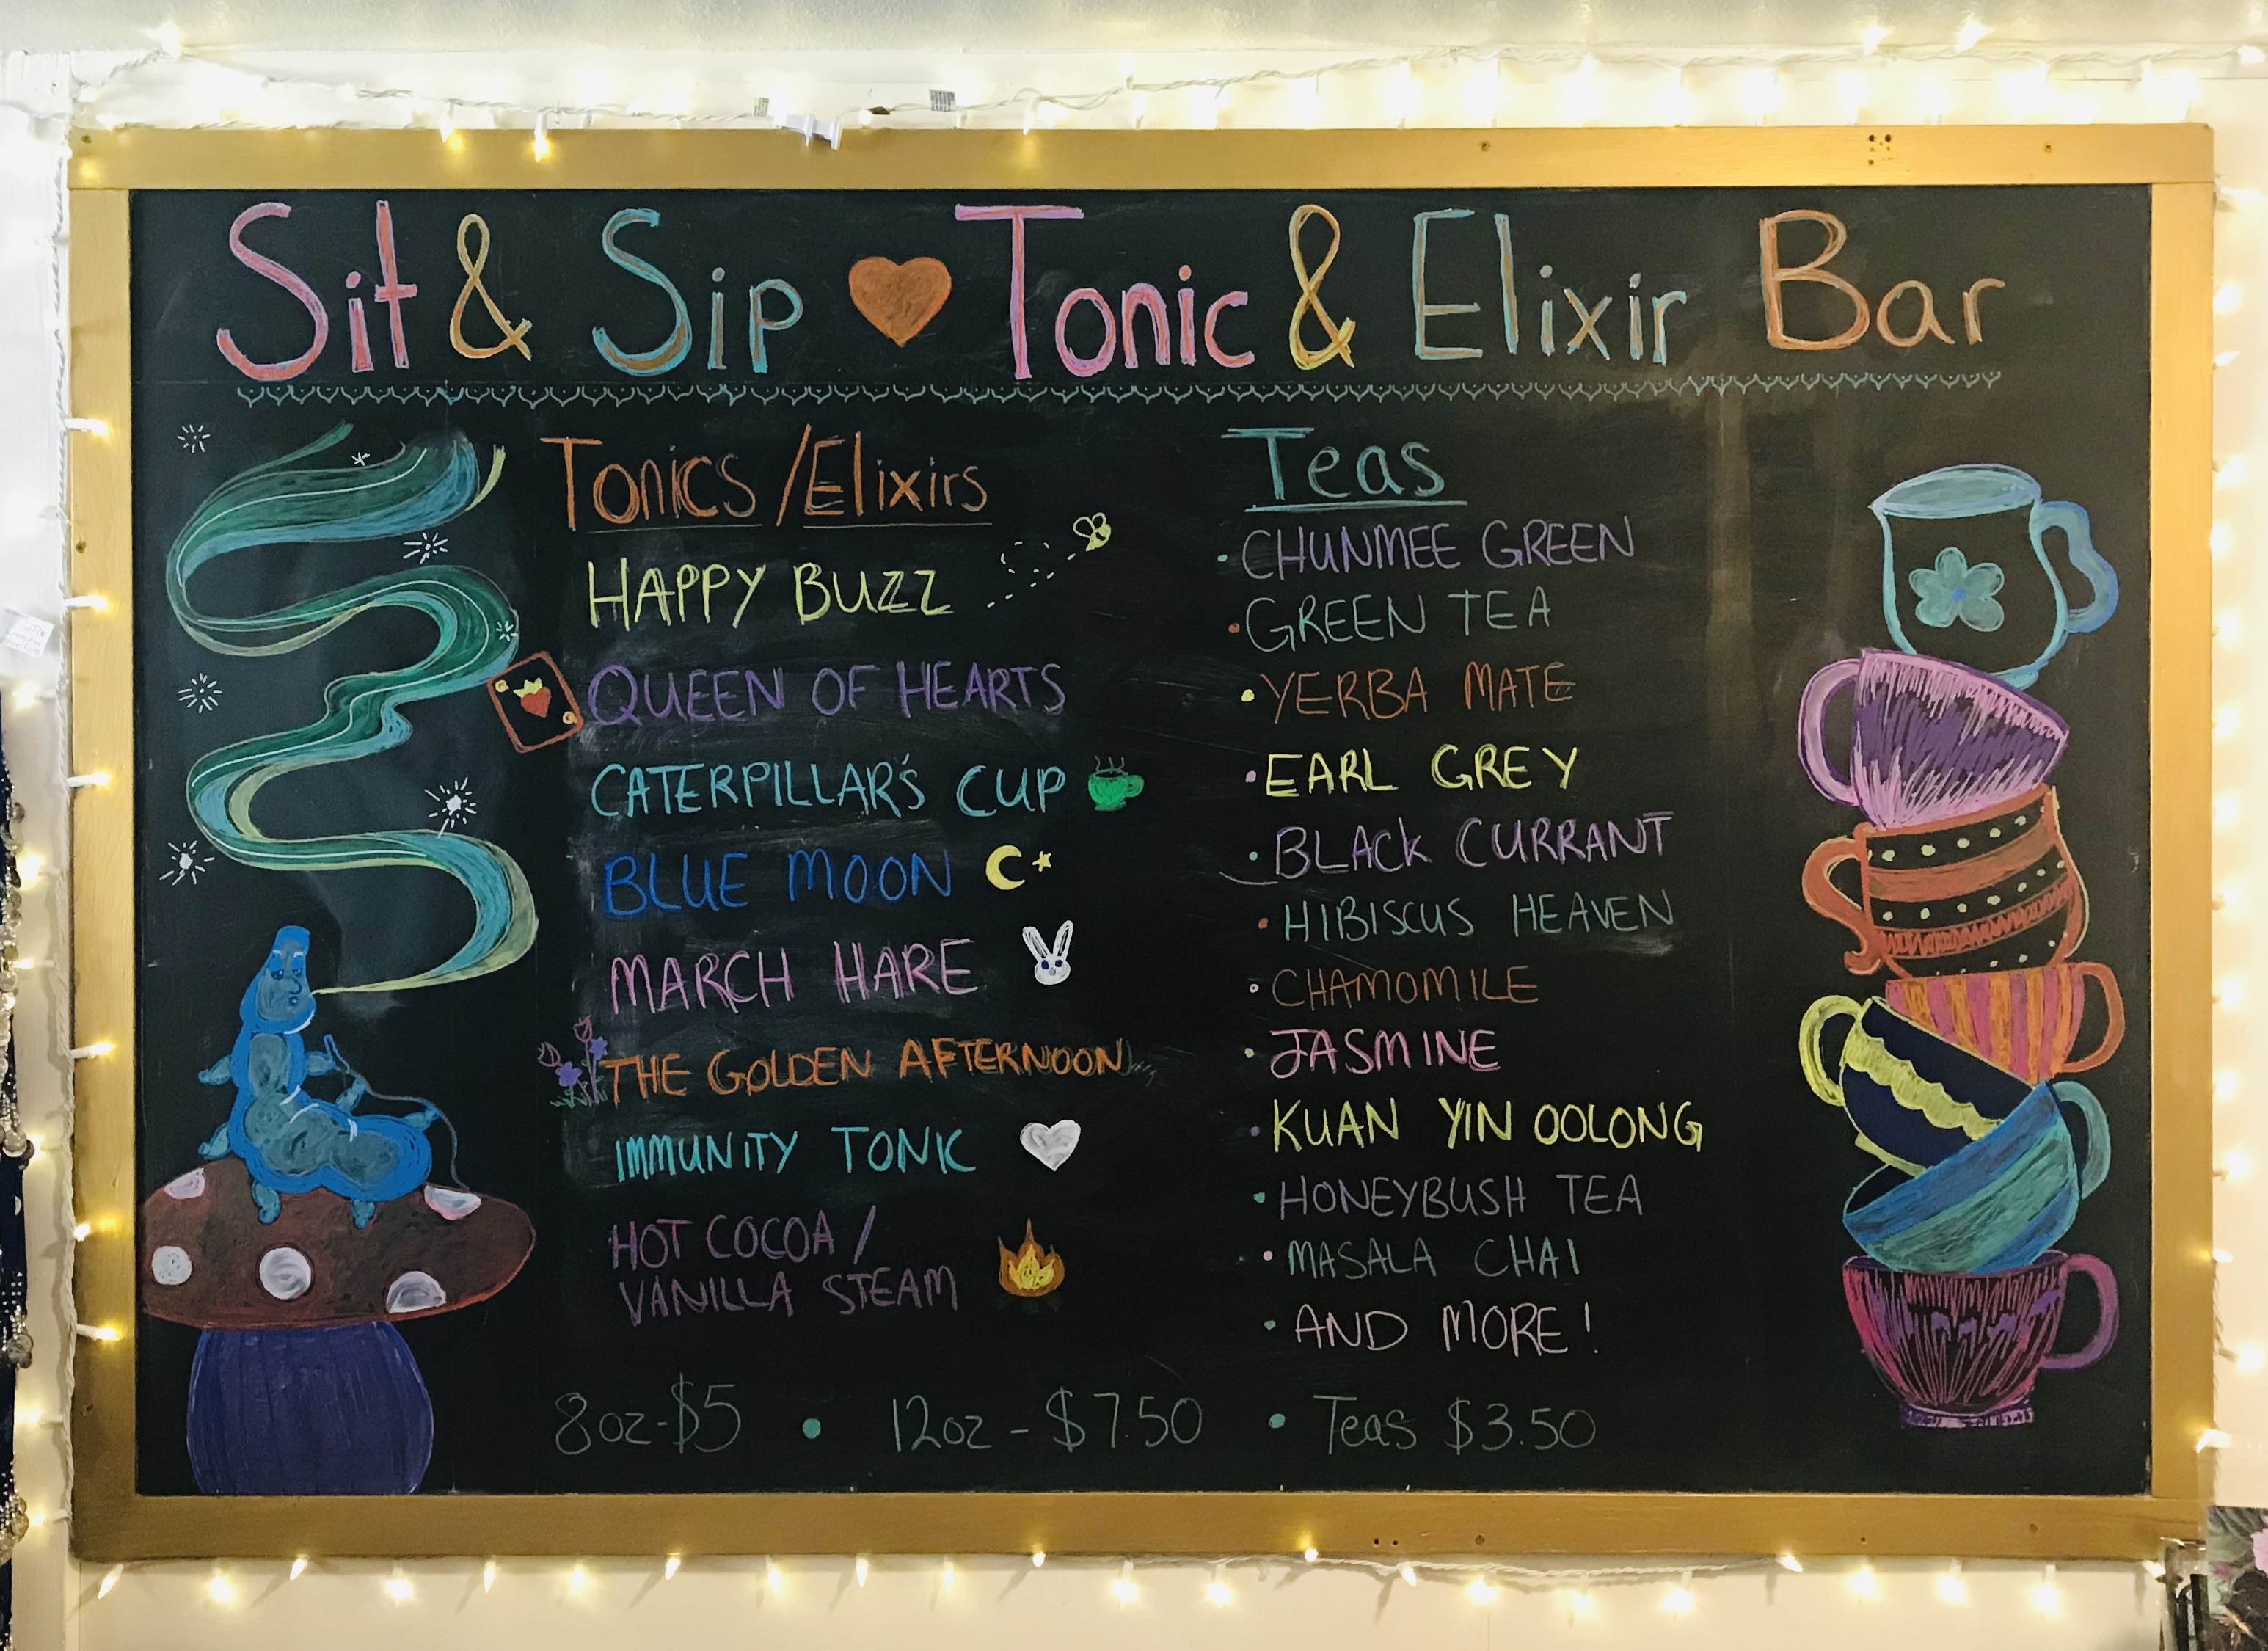 Sit & Sip ♥ Tonic & Elixir Bar
Tonics / Elixirs
HAPPY BUZZ
QUEEN OF HEARTS
CATERPILLAR'S CUP
BLUE MOON
MARCH HARE
THE GOLDEN AFTERNOON
IMMUNITY TONIC
HOT COCOA /
VANILLA STEAM
Teas
• CHUNMEE GREEN
• GREEN TEA
• YERBA MATE
• EARL GREY
• BLACK CURRANT
• HIBISCUS HEAVEN
• CHAMOMILE
• JASMINE
• KUAN YIN OOLONG
• HONEYBUSH TEA
• MASALA CHAI
• AND MORE!
8oz-$5 • 12oz - $7.50 • Teas $3.50